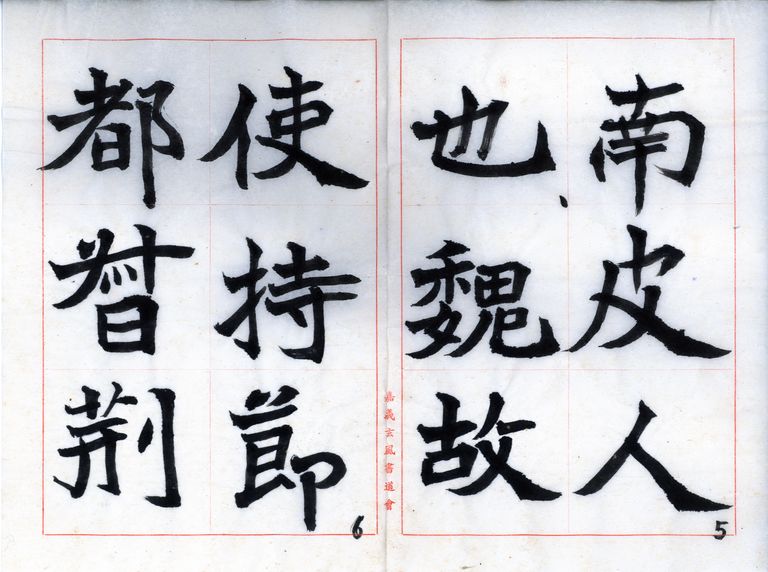 南皮人
也魏故
使持節
都督荊
5
嘉義玄風書道會
6